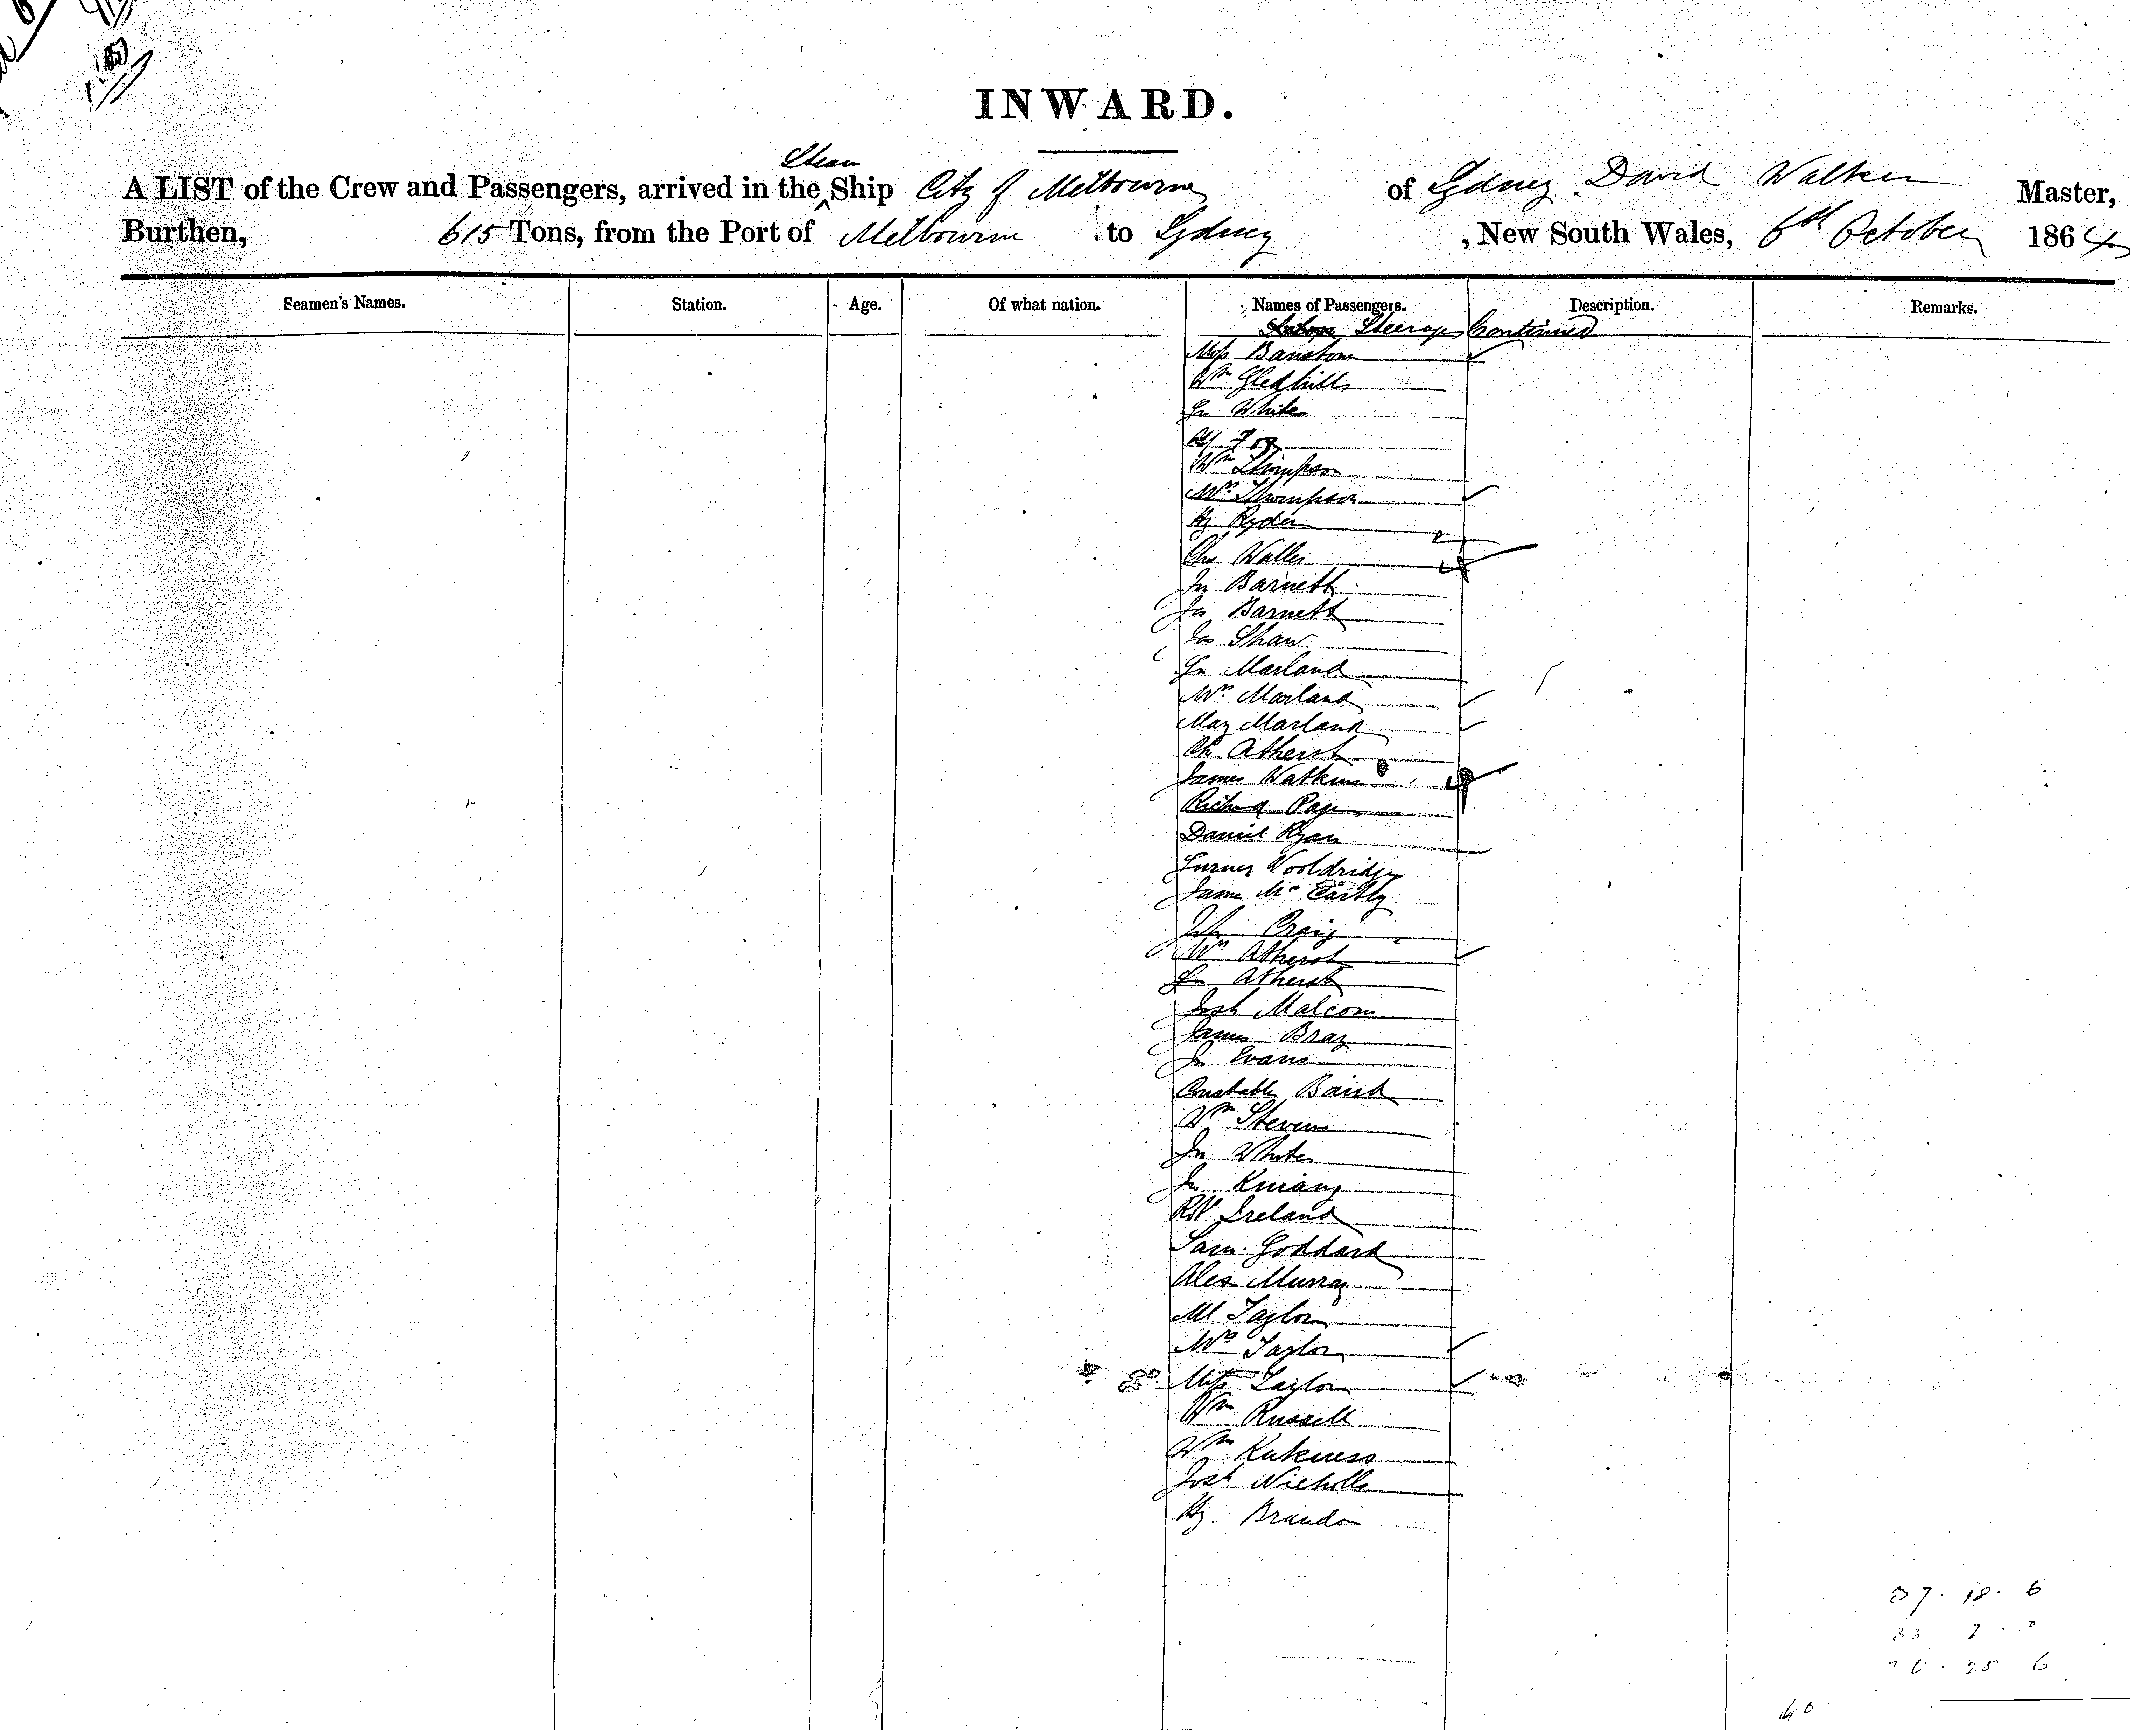 INWARD.
Steam
A LIST of the Crew and Passengers, arrived in the Ship City of Melbourne of Sydney David Walker Master,
Burthen, 615 Tons, from the Port of Melbourne to Sydney, New South Wales, 6th October 1864
Seamen's Names. Station. Age. Of what nation. Names of Passengers. Description. Remarks.
Steerage Continued
Miss
Wm Gledhill
Jn White
Wm Thompson
Mrs Thompson
Hy Ryder
Wallis
Jn Barnett
Jas Barnett
Jas Shaw
Jn Marland
Mrs Marland
May Marland
Ch Atherst
James Watkins
Richard Page
Daniel Ryan
Turner Wooldridge
James Mc Carthy
John Craig
Mrs Atherst
Jn Atherst
Josh Malcom
James Bray
Jn Evans
Constable Baird
Wm Stevens
Jn White
Jn
Rbt Ireland
Sam Goddard
Alex Murray
Ml Taylor
Mrs Taylor
Miss Taylor
Wm Russell
Wm
Josh Nicholls
Hy. Brandon
37. 18. 6
25 6
40